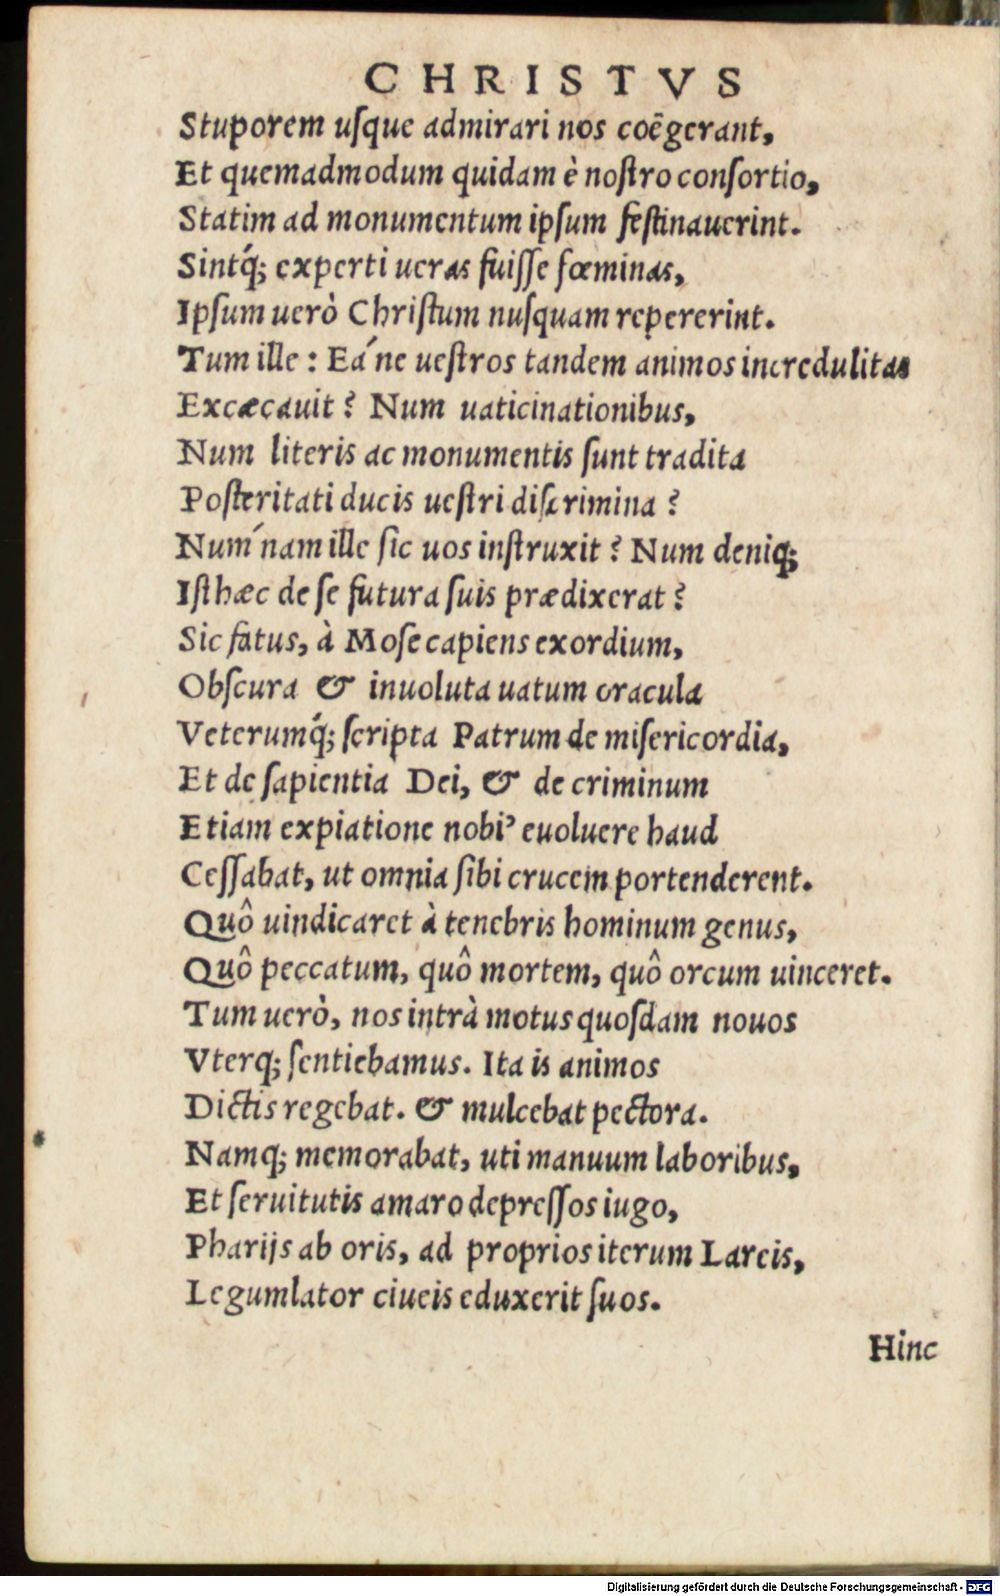 CHRISTVS
Stuporem uſque admirari nos coëgerant,
Et quemadmodum quidam è noſtro conſortio,
Statim ad monumentum ipſum feſtinauerint.
Sintq́; experti ueras fuiſſe fœminas,
Ipſum uerò Chriſtum nuſquam repererint.
Tum ille : Eá ne ueſtros tandem animos incredulitas
Excæcauit ? Num uaticinationibus,
Num literis ac monumentis ſunt tradita
Poſteritati ducis ueſtri diſcrimina ?
Num ́nam ille ſic uos inſtruxit ? Num deniq;
Iſthæc de ſe futura ſuis prædixerat ?
Sic fatus, à Moſe capiens exordium,
Obſcura & inuoluta uatum oracula
Veterumq́; ſcripta Patrum de miſericordia,
Et de ſapientia Dei, & de criminum
Etiam expiatione nobiꝰ euoluere haud
Ceſſabat, ut omnia ſibi crucem portenderent.
Quô uindicaret à tenebris hominum genus,
Quô peccatum, quô mortem, quô orcum uinceret.
Tum uerò, nos intrà motus quoſdam nouos
Vterq; ſentiebamus. Ita is animos
Dictis regebat. & mulcebat pectora.
Namq; memorabat, uti manuum laboribus,
Et ſeruitutis amaro depreſſos iugo,
Pharijs ab oris, ad proprios iterum Lareis,
Legumlator ciueis eduxerit ſuos.
Hinc
Digitalisierung gefördert durch die Deutsche Forschungsgemeinschaft - DFG